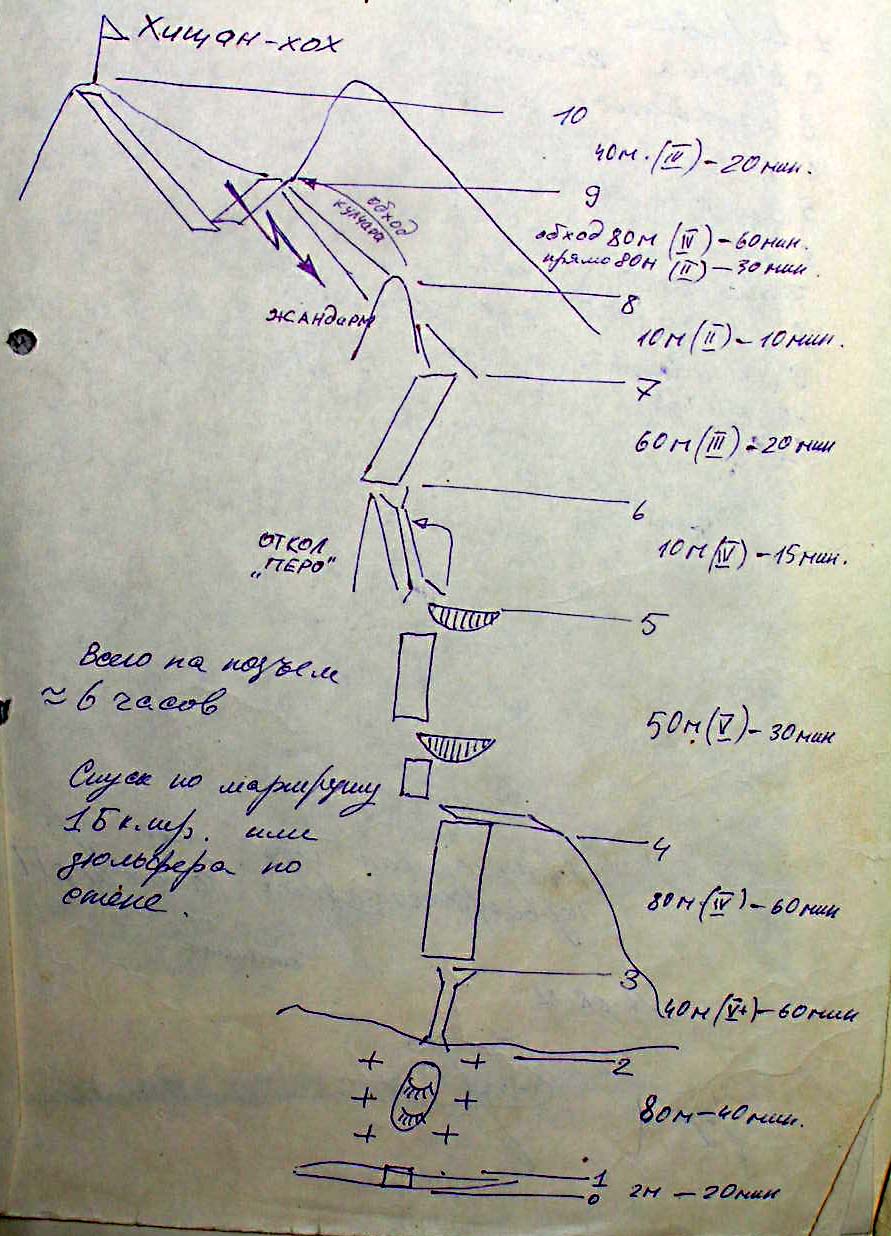 Хицан-хох
10
40м. (IV) - 20 мин.
9
обход
кулуара
обход 80м (IV) - 60 мин.
прямо 80м (II) - 30 мин.
8
жандарм
10м (II) - 10 мин.
7
60м (III) - 20 мин
6
10м (IV) - 15 мин.
откол
„ПЕРО"
5
Всего на подъем
≈ 6 часов
50м (V) - 30 мин
Спуск по маршруту
1Б к.тр. или
дюльфера по
стене.
4
80м (IV) - 60 мин
3
40м (V+) - 60 мин
2
80м - 40 мин.
1
0
2м - 20 мин